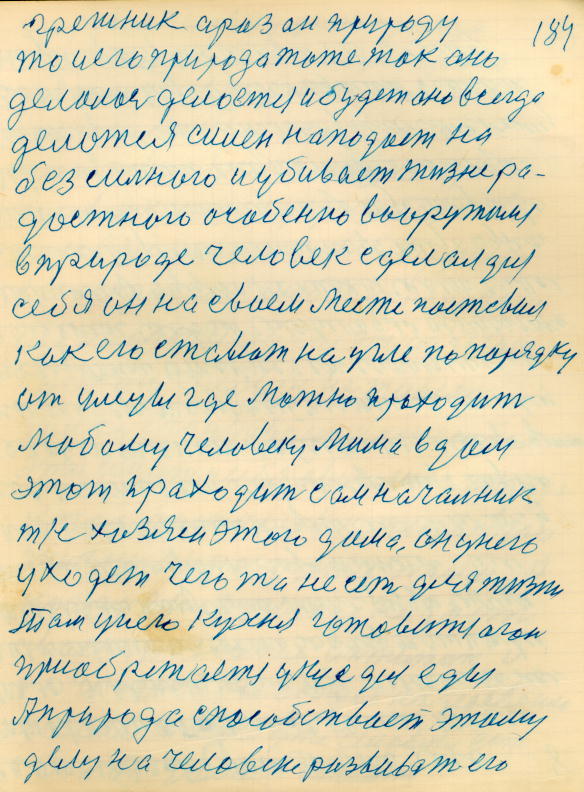 184
грешник а раз он природу
то и его природа тоже так оно
делалось делается и будет оно всегда
делатся силен нападает на
безсилного и убивает жизнера-
достного особенно вооружоля
в природе человек сделал для
себя он на своем месте поставил
как его ставют на угле по порядку
от улецы где можно праходит
любому человеку мима в дом
этот праходит сам началник
т/е хозяен этого дома, он у него
уходет чегота несет для жизни
там у него кухня готовится огон
приобретается укус для еды
А природа способствает этому
делу на человеке развиват его